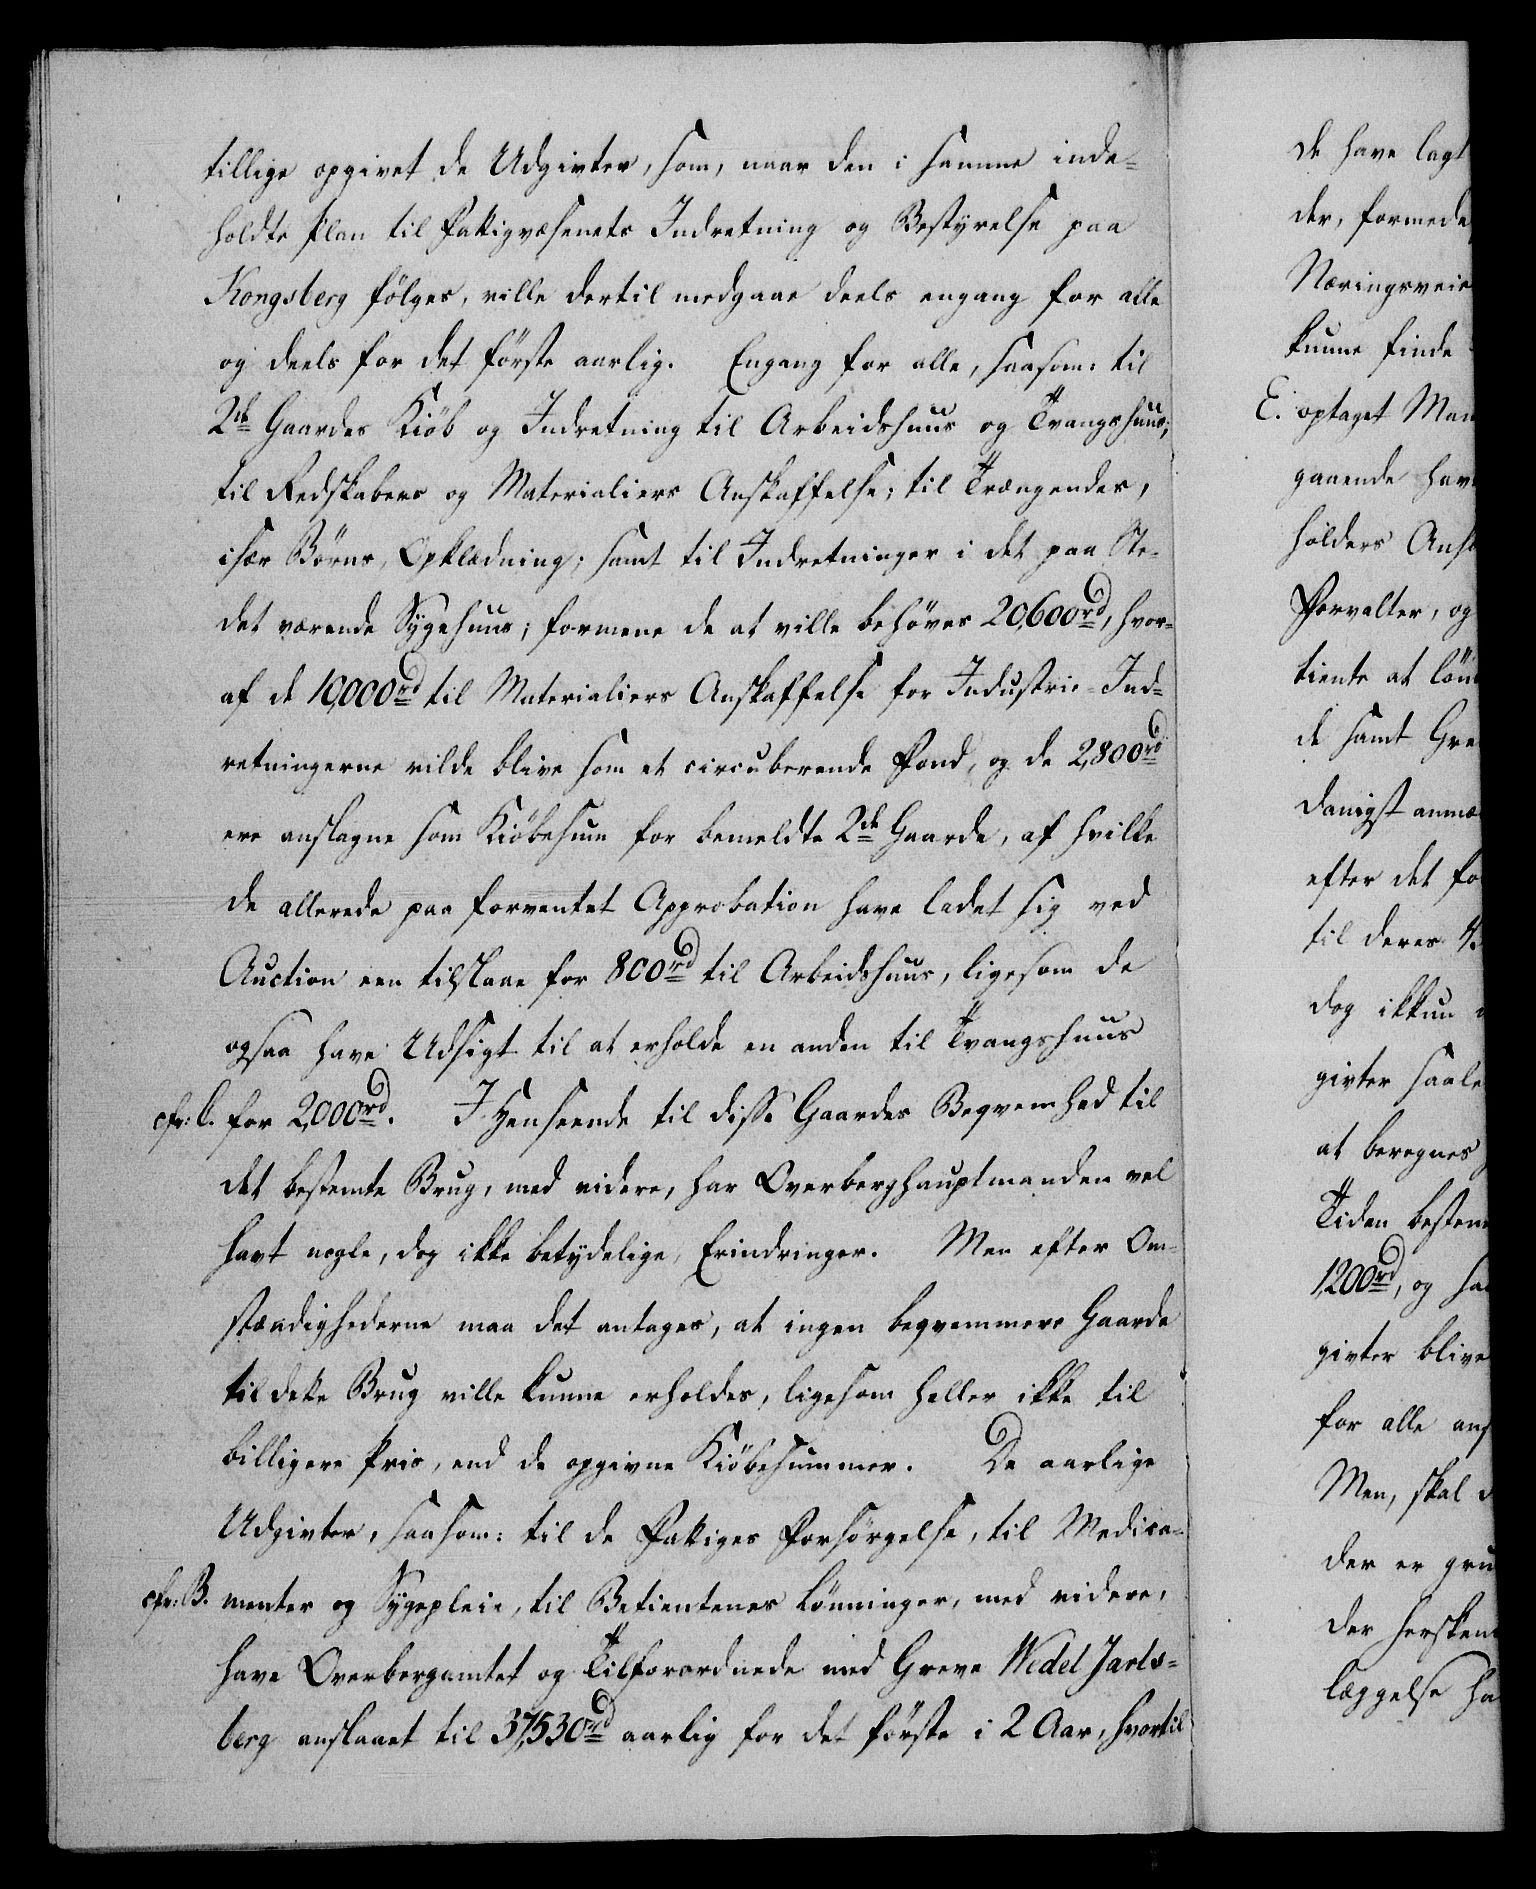 tillige opgivet de Udgivter, som, naar den i samme inde-
holdte Plan til Fattigvæsenets Indretning og Bestyrelse paa
Kongsberg følges, ville dertil medgaae deels engang for alle
og deels for det første aarlig. Engang for alle, saasom: til
2de Gaardes Kiöb og Indretning til Arbeidshuus og Tvangshuus;
til Redskabers og Materialiers Anskaffelse; til Trængendes,
især Börns, Opklædning; samt til Indretninger i det paa Ste-
det værende Sygehuus; formene de at ville behöves 20,600rd, hvor-
af de 10,000rd til Materialiers Anskaffelse for Industrie-Ind-
retningerne vilde blive som et circulerende Fond, og de 2,800rd
ere anslagne som Kiöbesum for bemeldte 2de Gaarde, af hvilke
de allerede paa forventet Approbation have ladet sig ved
Auction een tilslaae for 800rd til Arbeidshuus, ligesom de
ogsaa have Udsigt til at erholde en anden til Tvangshuus
cfr: C. for 2,000rd. I Henseende til disse Gaardes Beqvemhed til
det bestemte Brug, med videre, har Overberghauptmanden vel
havt nogle, dog ikke betydelige, Erindringer. Men efter Om-
stændighederne maa det antages, at ingen beqvemmere Gaarde
til dette Brug ville kunne erholdes, ligesom heller ikke til
billigere Priis, end de opgivne Kiöbesummer. De aarlige
Udgivter, saasom: til de Fattiges Forsörgelse, til Medica-
cfr: B. menter og Sygepleie, til Betientenes Lönninger, med videre,
have Overbergamtet og Tilforordnede med Greve Wedel Jarls-
berg anslaaet til 37,530rd aarlig for det förste i 2 Aar, hvortil
de have lagt
der, formede
Næringsveie
kunne finde
E. optaget
gaaende
holders
Forvalter, og
tiente at
de samt
danigst
efter det
til deres
dog ikkun
givter
at beregnes
Tiden
1,200rd, og
givter blive
for alle
Men, skal
der er
der
læggelse